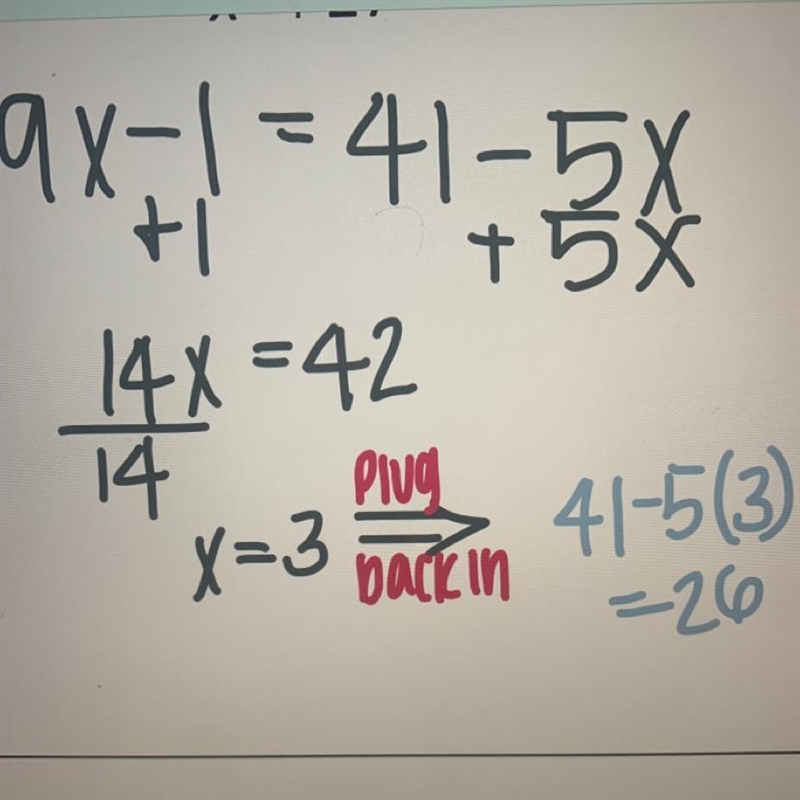 9x-1 = 41-5x
+1 +5x
14x = 42
14
x=3 Plug back in 41-5(3)
=26